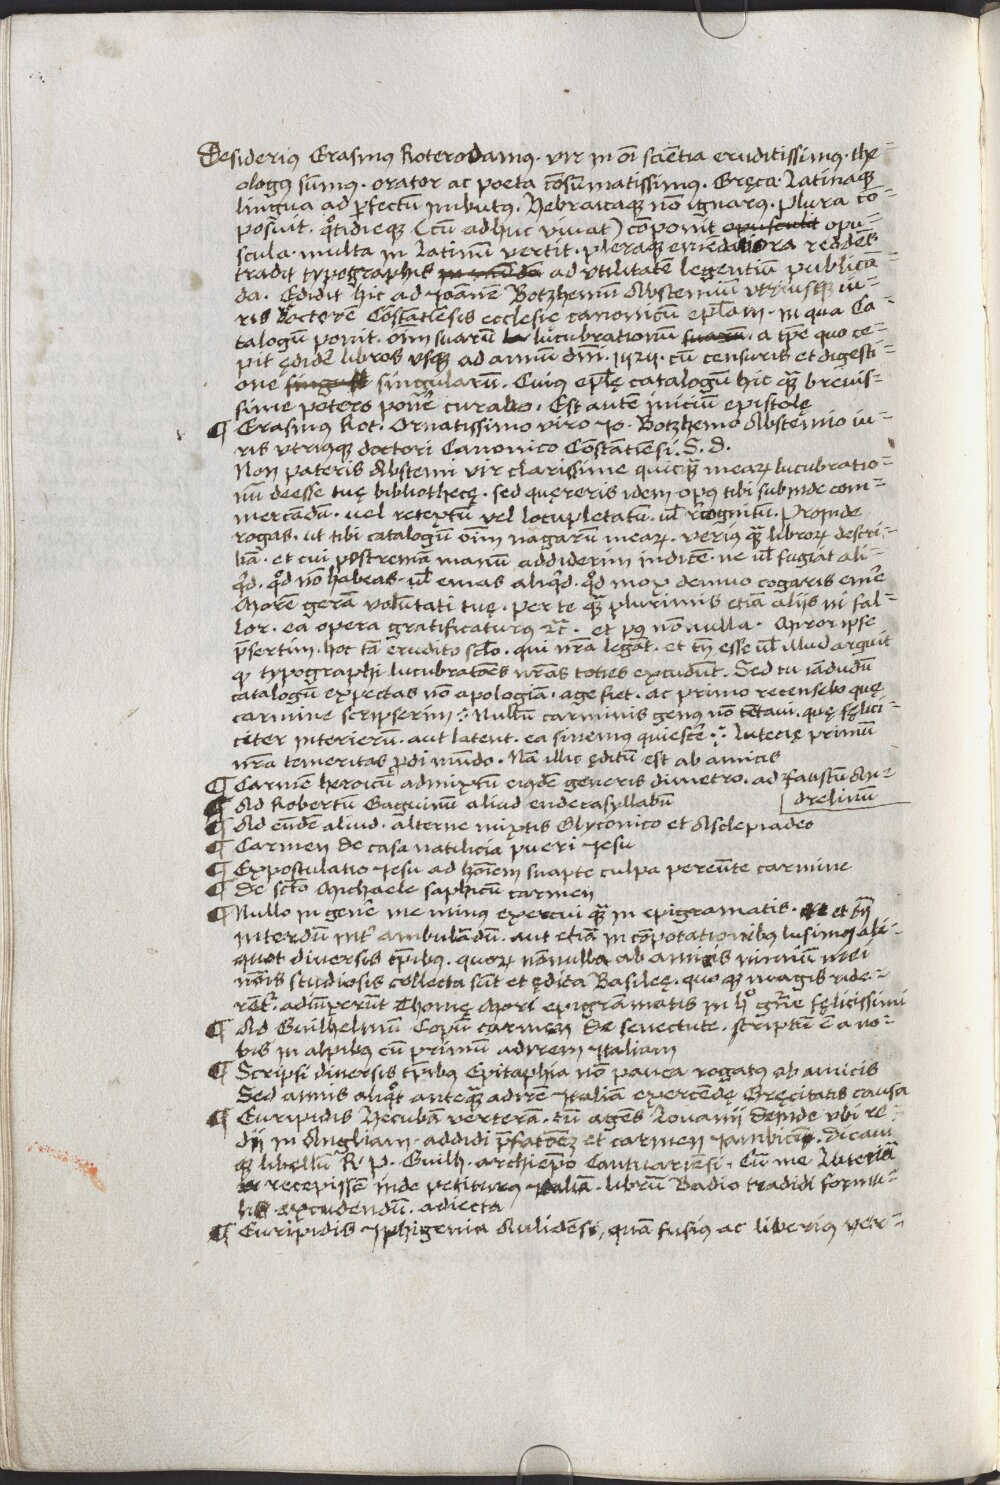 Desiderius Erasmus Roterodamus. vir in oi̅ scientia eruditissimus. the=
ologus su̅mus. orator ac poeta co̅su̅matissimus. Gręca. Latinaq̨
lingua ad p̱fectu̅ imbutus. Hebraicaq̨ no̅ ignarus. plura co̅=
posuit. q̊tidieq̨ (cu̅ adhuc vivat) co̅ponit opuscula opu=
scula. multa in Latinu̅ vertit. pleraq̨ eme̅datiora redde̅s
tradit typographis ad vtilitate̅ legentiu̅ publica̅
da. Edidit hic ad Joa̅ne̅ Botzhemu̅ Abstemiu̅ vtriusq̨ iu=
ris doctore̅ Consta̅tie̅sis ecclesie canonicu̅ epl̅am. in qua Ca=
talogu̅ ponit. oi̅m suaru̅ lucubrationu̅ suaru̅. a tp̅e quo ce=
pit ędide̅ libros vsq̨ ad annu̅ dn̅i. 1524. cu̅ censuris et digesti=
one singul singularu̅. Cuius ep̅lę catalogu̅ hic q̅ brevis=
sime potero pone̅r̅ curabo. Est aute̅ iniciu̅ epistolę
¶ Erasmus Rot. Ornatissimo viro Jo. Botzhemo Abste̅mio iu=
ris vtriusq̨ doctori Canonico Consta̅tie̅si. S. d.
Non pateris Abstemi vir clarissime quicq̅ mearꝝ lucubratio=
nu̅ deesse tuę bibliothecę. sed quęreris idem opus tibi subinde com=
merca̅du̅. uel retextu̅ vel locupletatu̅. ul̅ recognitu̅. Proinde
rogas. ut tibi catalogu̅ oi̅m nugaru̅ mearꝝ. verius q̅ librorꝝ descri=
ba̅. et cui postrema̅ manu̅ addiderim indice̅. ne ul̅ fugiat ali=
q̇d. q̊d no̅ habeas. ul̅ emas aliq̇d. q̊d mox denuo cogaris eme̅r̅
More̅ gera̅ volu̅tati tuę. per te q̅ plurimis etia̅ alijs ni fal=
lor. ea opera gratificaturus ⁊c̅. et post no̅nulla. Miror ipse
p̅sertim. hoc ta̅ erudito scl̅o. qui nr̅a lega̅t. et tn̅ esse ul̅ illud arguit
q̨ typographi lucubrato̅es nr̅as toties excudu̅t. Sed tu ia̅dudu̅
catalogu̅ expectas no̅ apologia̅. age fiet. ac primo recensebo quę
carmine scripserim ∴ Nullu̅ carminis genus no̅ te̅tavi. quę fęlici=
citer interieru̅. aut latent. ea sinemus quiesce̅r̅ ∴ Lutecię primu̅
nr̅a temeritas p̱di mu̅do. Na̅ illic ęditu̅ est ab amicis
¶ Carme̅ heroicu̅ admixtu̅ eiusde̅ generis dimetro. ad Faustu̅ An=
drelinu̅
¶ Ad Robertu̅ Gaguinu̅ aliud endecasyllabu̅
¶ Ad eu̅de̅ aliud. alterne mixtis Glyconico et Asclepiadeo
¶ Carmen de casa natilicia pueri Jesu
¶ Expostulatio Jesu ad ho̅i̅em suapte culpa pereu̅te carmine
¶ De scto̅ Michaele saphicu̅ carmen
¶ Nullo in gene̅r̅ me minus exercui q̅ in epigra̅matis. et tn̅
interdu̅ int̅ ambula̅du̅. aut etia̅ in co̅potationibus lusimus ali=
quot diversis tp̅ibus. quorꝝ no̅nulla ab amicis nimiu̅ mei
no̅i̅s studiosis collecta su̅t et ędita Basileę. quo q̨ magis ride=
re̅t̅. adiu̅xeru̅t Thomę Mori epigra̅matis in h̊ gn̅e fęlicissimi
¶ Ad Guilhelmu̅ Copu̅ carmen de senectute. scriptu̅ e̅ a no=
bis in alpibus cu̅ primu̅ adirem Italiam
¶ Scripsi diversis tp̅ibus Epitaphia no̅ pauca rogatus ab amicis
Sed annis aliq̊t anteq̅ adire̅ Italia̅ exerce̅dę Gręcitatis causa
¶ Euripidis Hecuba̅ vertera̅. tu̅ age̅s Lovanij deinde vbi re=
dij in Angliam. addidi p̅fato̅ez et carmen Iambicu̅. dicavi
q̨ libellu̅ R. P. Guilh. archiep̅o Cantuarie̅si. Cu̅ me Luteria̅
recepisse̅ inde petiturus Italia̅. libru̅ Badio tradidi formu=
lis excudendu̅. adiecta
¶ Euripidis Iphigenia Aulide̅si, qua̅ fusius ac liberius ver=